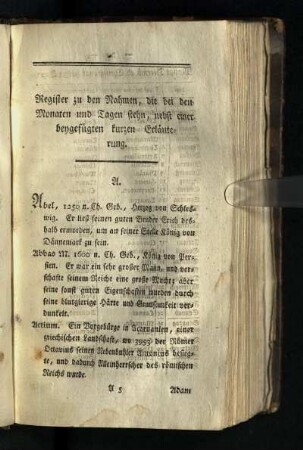 Register zu den Nahmen, die bei den
Monaten und Tagen stehn, nebst einer
beygefügten kurzen Erläute-
rung.
A.
Abel, 1250 n. Ch. Geb., Herzog von Schles-
wig. Er ließ seinen guten Bruder Erich des-
halb ermorden, um an seiner Stelle König von
Dännemark zu sein.
Abbas M. 1600 n. Ch. Geb., König von Per-
sien. Er war ein sehr großer Mann, und ver-
schafte seinem Reiche eine große Macht; aber
seine sonst guten Eigenschaften wurden durch
seine blutgierige Härte und Grausamkeit ver-
dunkelt.
Actium. Ein Vorgebürge in Acarnanien, einer
griechischen Landschaft, wo 3953 der Römer
Octavius seinen Nebenbuhler Antonius besieg-
te, und dadurch Alleinherrscher des römischen
Reichs wurde.
A 5
Adam